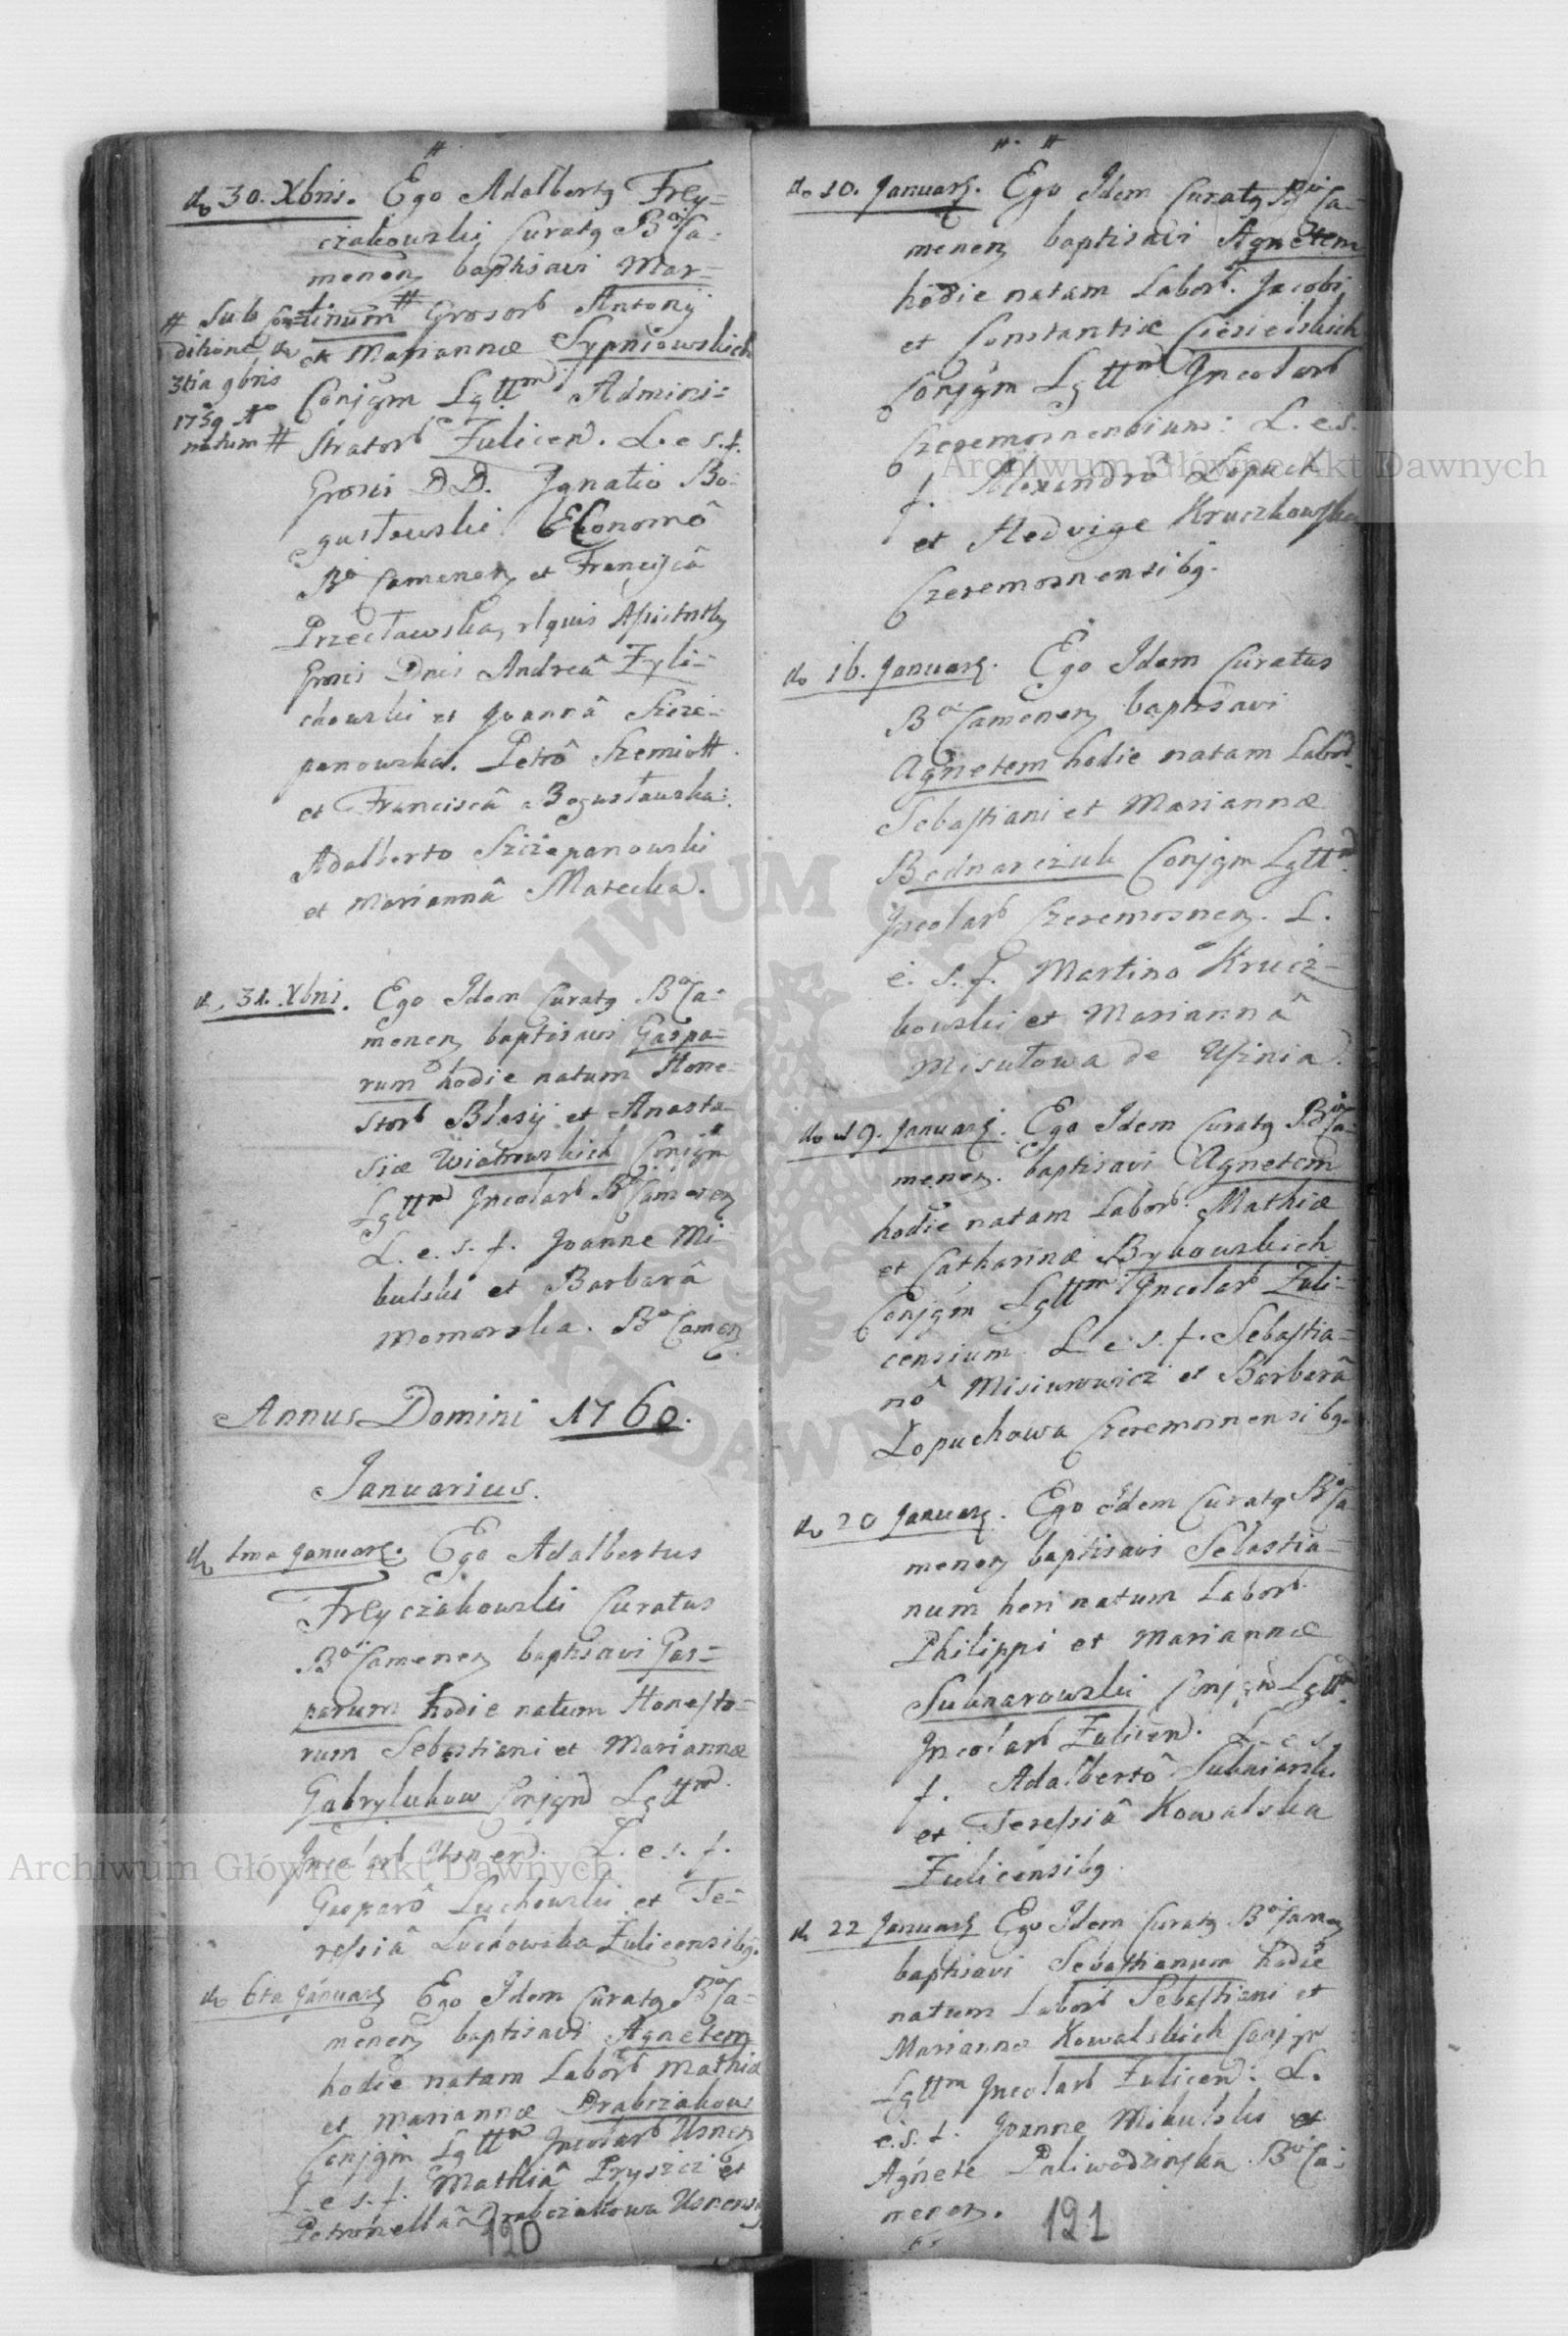 #
do 30. Xbris. Ego Adalbertg Frey=
czakowski Curatg Bo Ca=
menen baptisavi Mar=
tinum # Grosorb Antonij
et Mariannæ Sypniowskich
Conjgm Lgttm Admini=
stratorb Zulicen. L. e s. f.
Grosis D D. Ignatio Bo=
gusławski EConomô
Bo Camenen et Franciscâ
Przecławska, rlquis Assistntbg
Grosis Dnis Andreâ Zyli=
chowski et Joannâ Szcze=
panowska. Petrô Szemiott
et Franciscâ Bogusławska.
Adalberto Szczepanowski
et Mariannâ Matecka.
# Sub con=
ditione de
3tia 9bris
1759 Ao
natum #
d. 31. Xbris. Ego Idem Curatg Bo Ca=
menen baptisavi Gaspa=
rum hodie natum Hone=
storb Blasij et Anasta=
siæ Wiatrowskich Conjgm
Lgttm Incolarb Bo Camenen
L. e. s. f. Joanne Mi=
kulski et Barbarâ
Momorska. Bo Camen
Annus Domini 1760.
Januarius.
do 1ma Januarj. Ego Adalbertus
Freyczakowski Curatus
Bo Camenen baptisavi Gas=
parum hodie natum Honesto=
rum Sebastiani et Mariannæ
Gabrylukow Conjgm Lgttm.
Incolarb Usnen. L. e s. f.
Gasparô Luchowski et Te=
ressiâ Luchowska Zulicensibg.
do 6ta Januarj Ego Idem Curatg Bo Ca=
menen baptisavi Agnetem
hodie natam Laborb Mathiæ
et Mariannæ Drabczakow
Conjgm Lgttm Incolarb Usnen
L. e s. f. Mathiâ Pryszcz et
Petronellâ Drabczakowa Usnensibg
120
#. #
do 10. Januarj. Ego Idem Curatg Bo Ca=
menen baptisavi Agnetem
hodie natam Laborb. Jacobi
et Constantiæ Ciesielskich
Conjgm Lgttm Incolarb
Czeremosnensium: L. e s.
f. Alexandrô Łopuch
et Hedvige Kruczkowska
Czeremosnensibg.
do 16. Januarj. Ego Idem Curatus
Bo Camenen baptisavi
Agnetem hodie natam Laborb.
Sebastiani et Mariannæ
Bednarczuk Conjgm Lgttm.
Incolarb Czeremosnen. L.
e. s. f. Martino Krucz=
kowski et Mariannâ
Misułowa de Usznia.
do 19. Januarj. Ego Idem Curatg Bo Ca=
menen. baptisavi Agnetem
hodie natam Laborb. Mathiæ
et Catharinæ Bykowskich
Conjgm Lgttm Incolarb Zuli=
censium L e. s. f. Sebastia=
nô Misiurowicz et Barbarâ
Łopuchowa Czeremosnensibg.
do 20 Januarj. Ego Idem Curatg Bo Ca
menen baptisavi Sebastia=
num heri natum Laborb.
Philippi et Mariannæ
Suknarowski Conjgm Lgttm.
Incolarb Zulicen. L e s.
f. Adalbertô Sukniarski
et Teressiâ Kowalska
Zulicensibg.
do 22 Januarj Ego Idem Curatg Bo Camen
baptisavi Sebastianum hodie
natum Laborb Sebastiani et
Marianna Kowalskich Conjgm
Lgttm Incolarb Zulicen: L.
e. s. f. Joanne Mikulski et
Agnete Paliwodzinska Bo Ca=
menen.
121
Archiwum Główne Akt Dawnych
Archiwum Główne Akt Dawnych